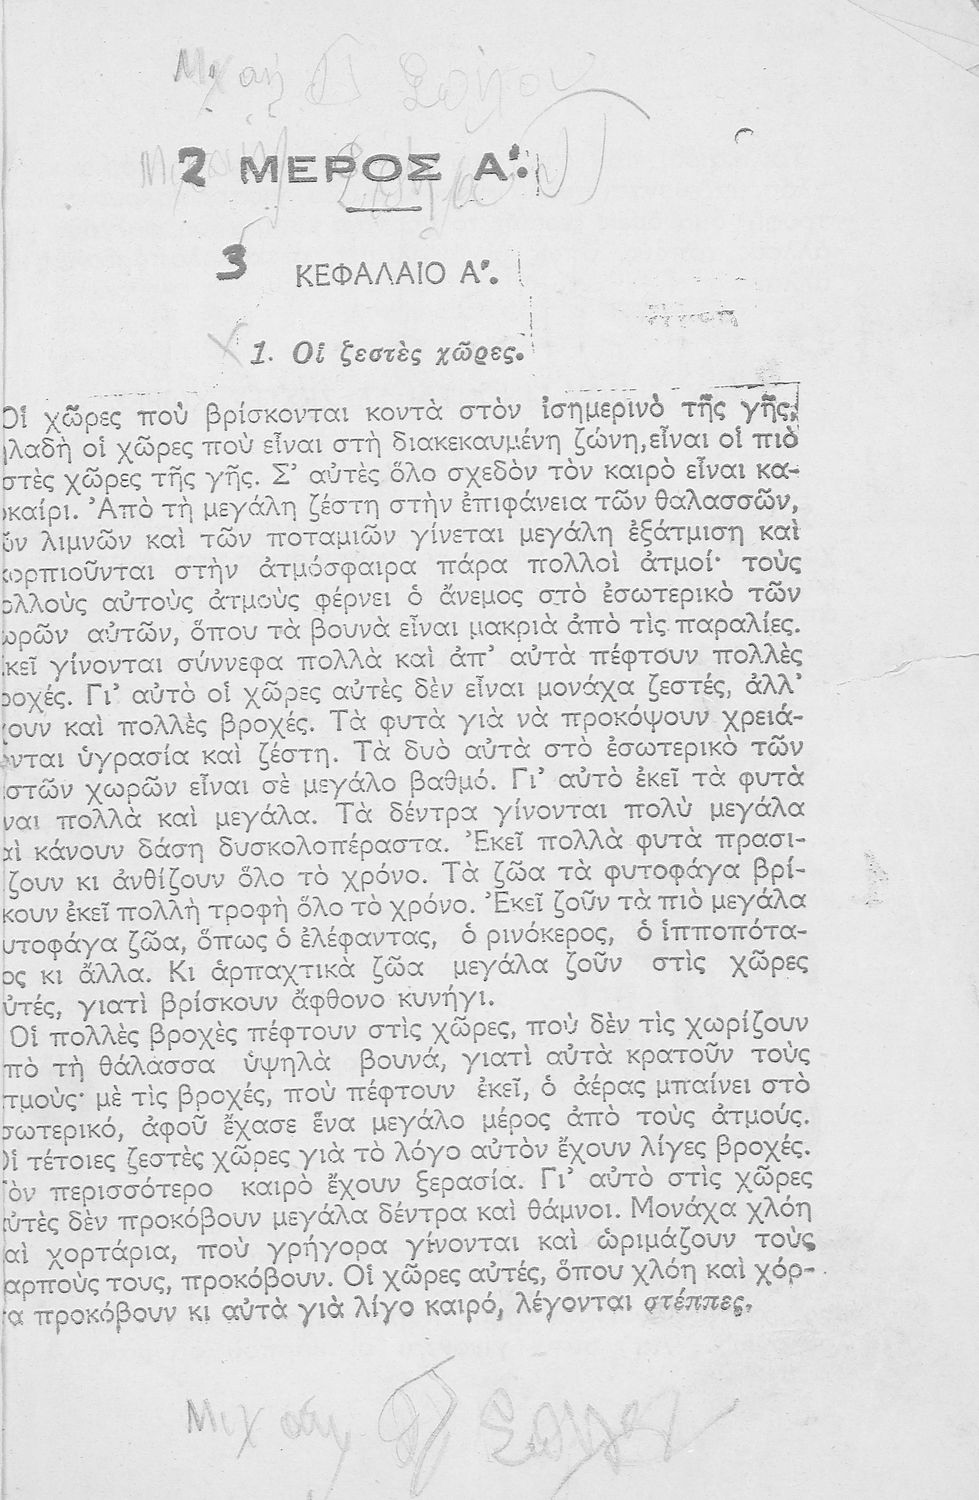 2 ΜΕΡΟΣ Α'.
3 ΚΕΦΑΛΑΙΟ Α'.
1. Οἱ ζεστὲς χῶρες.
Οἱ χῶρες ποὺ βρίσκονται κοντὰ στὸν ἰσημερινὸ τῆς γῆς,
λαδὴ οἱ χῶρες ποὺ εἶναι στὴ διακεκαυμένη ζώνη, εἶναι οἱ πιὸ
στὲς χῶρες τῆς γῆς. Σ' αὐτὲς ὅλο σχεδὸν τὸν καιρὸ εἶναι κα-
καίρι. Ἀπὸ τὴ μεγάλη ζέστη στὴν ἐπιφάνεια τῶν θαλασσῶν,
ῶν λιμνῶν καὶ τῶν ποταμιῶν γίνεται μεγάλη ἐξάτμιση καὶ
ορπιοῦνται στὴν ἀτμόσφαιρα πάρα πολλοὶ ἀτμοί· τοὺς
ολλοὺς αὐτοὺς ἀτμοὺς φέρνει ὁ ἄνεμος στὸ ἐσωτερικὸ τῶν
ωρῶν αὐτῶν, ὅπου τὰ βουνὰ εἶναι μακριὰ ἀπὸ τὶς παραλίες.
κεῖ γίνονται σύννεφα πολλὰ καὶ ἀπ' αὐτὰ πέφτουν πολλὲς
ροχές. Γι' αὐτὸ οἱ χῶρες αὐτὲς δὲν εἶναι μονάχα ζεστές, ἀλλ'
ουν καὶ πολλὲς βροχές. Τὰ φυτὰ γιὰ νὰ προκόψουν χρειά-
νται ὑγρασία καὶ ζέστη. Τὰ δυὸ αὐτὰ στὸ ἐσωτερικὸ τῶν
στῶν χωρῶν εἶναι σὲ μεγάλο βαθμό. Γι' αὐτὸ ἐκεῖ τὰ φυτὰ
ναι πολλὰ καὶ μεγάλα. Τὰ δέντρα γίνονται πολὺ μεγάλα
αὶ κάνουν δάση δυσκολοπέραστα. Ἐκεῖ πολλὰ φυτὰ πρασι-
ίζουν κι ἀνθίζουν ὅλο τὸ χρόνο. Τὰ ζῶα τὰ φυτοφάγα βρί-
κουν ἐκεῖ πολλὴ τροφὴ ὅλο τὸ χρόνο. Ἐκεῖ ζοῦν τὰ πιὸ μεγάλα
υτοφάγα ζῶα, ὅπως ὁ ἐλέφαντας, ὁ ρινόκερος, ὁ ἱπποπότα-
ος κι ἄλλα. Κι ἁρπαχτικὰ ζῶα μεγάλα ζοῦν στὶς χῶρες
ὐτές, γιατὶ βρίσκουν ἄφθονο κυνήγι.
Οἱ πολλὲς βροχὲς πέφτουν στὶς χῶρες, ποὺ δὲν τὶς χωρίζουν
πὸ τὴ θάλασσα ὑψηλὰ βουνά, γιατὶ αὐτὰ κρατοῦν τοὺς
τμούς· μὲ τὶς βροχές, ποὺ πέφτουν ἐκεῖ, ὁ ἀέρας μπαίνει στὸ
σωτερικό, ἀφοῦ ἔχασε ἕνα μεγάλο μέρος ἀπὸ τοὺς ἀτμούς.
Οἱ τέτοιες ζεστὲς χῶρες γιὰ τὸ λόγο αὐτὸν ἔχουν λίγες βροχές.
Τὸν περισσότερο καιρὸ ἔχουν ξερασία. Γι' αὐτὸ στὶς χῶρες
αὐτὲς δὲν προκόβουν μεγάλα δέντρα καὶ θάμνοι. Μονάχα χλόη
αὶ χορτάρια, ποὺ γρήγορα γίνονται καὶ ὡριμάζουν τοὺς
αρποὺς τους, προκόβουν. Οἱ χῶρες αὐτές, ὅπου χλόη καὶ χόρ-
τα προκόβουν κι αὐτὰ γιὰ λίγο καιρό, λέγονται στέππες.